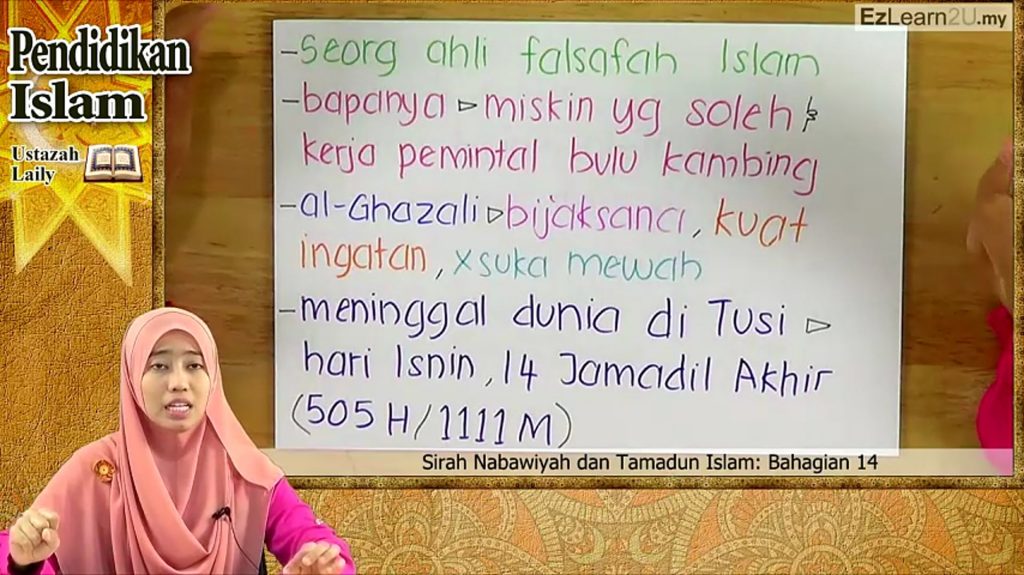 EzLearn2U.my
Pendidikan
Islam
Ustazah
Laily
-seorg ahli falsafah Islam
-bapanya ▷ miskin yg soleh &
kerja pemintal bulu kambing
-al-Ghazali ▷ bijaksana, kuat
ingatan, xsuka mewah
-meninggal dunia di Tusi ▷
hari Isnin, 14 Jamadil Akhir
(505 H/1111 M)
Sirah Nabawiyah dan Tamadun Islam: Bahagian 14